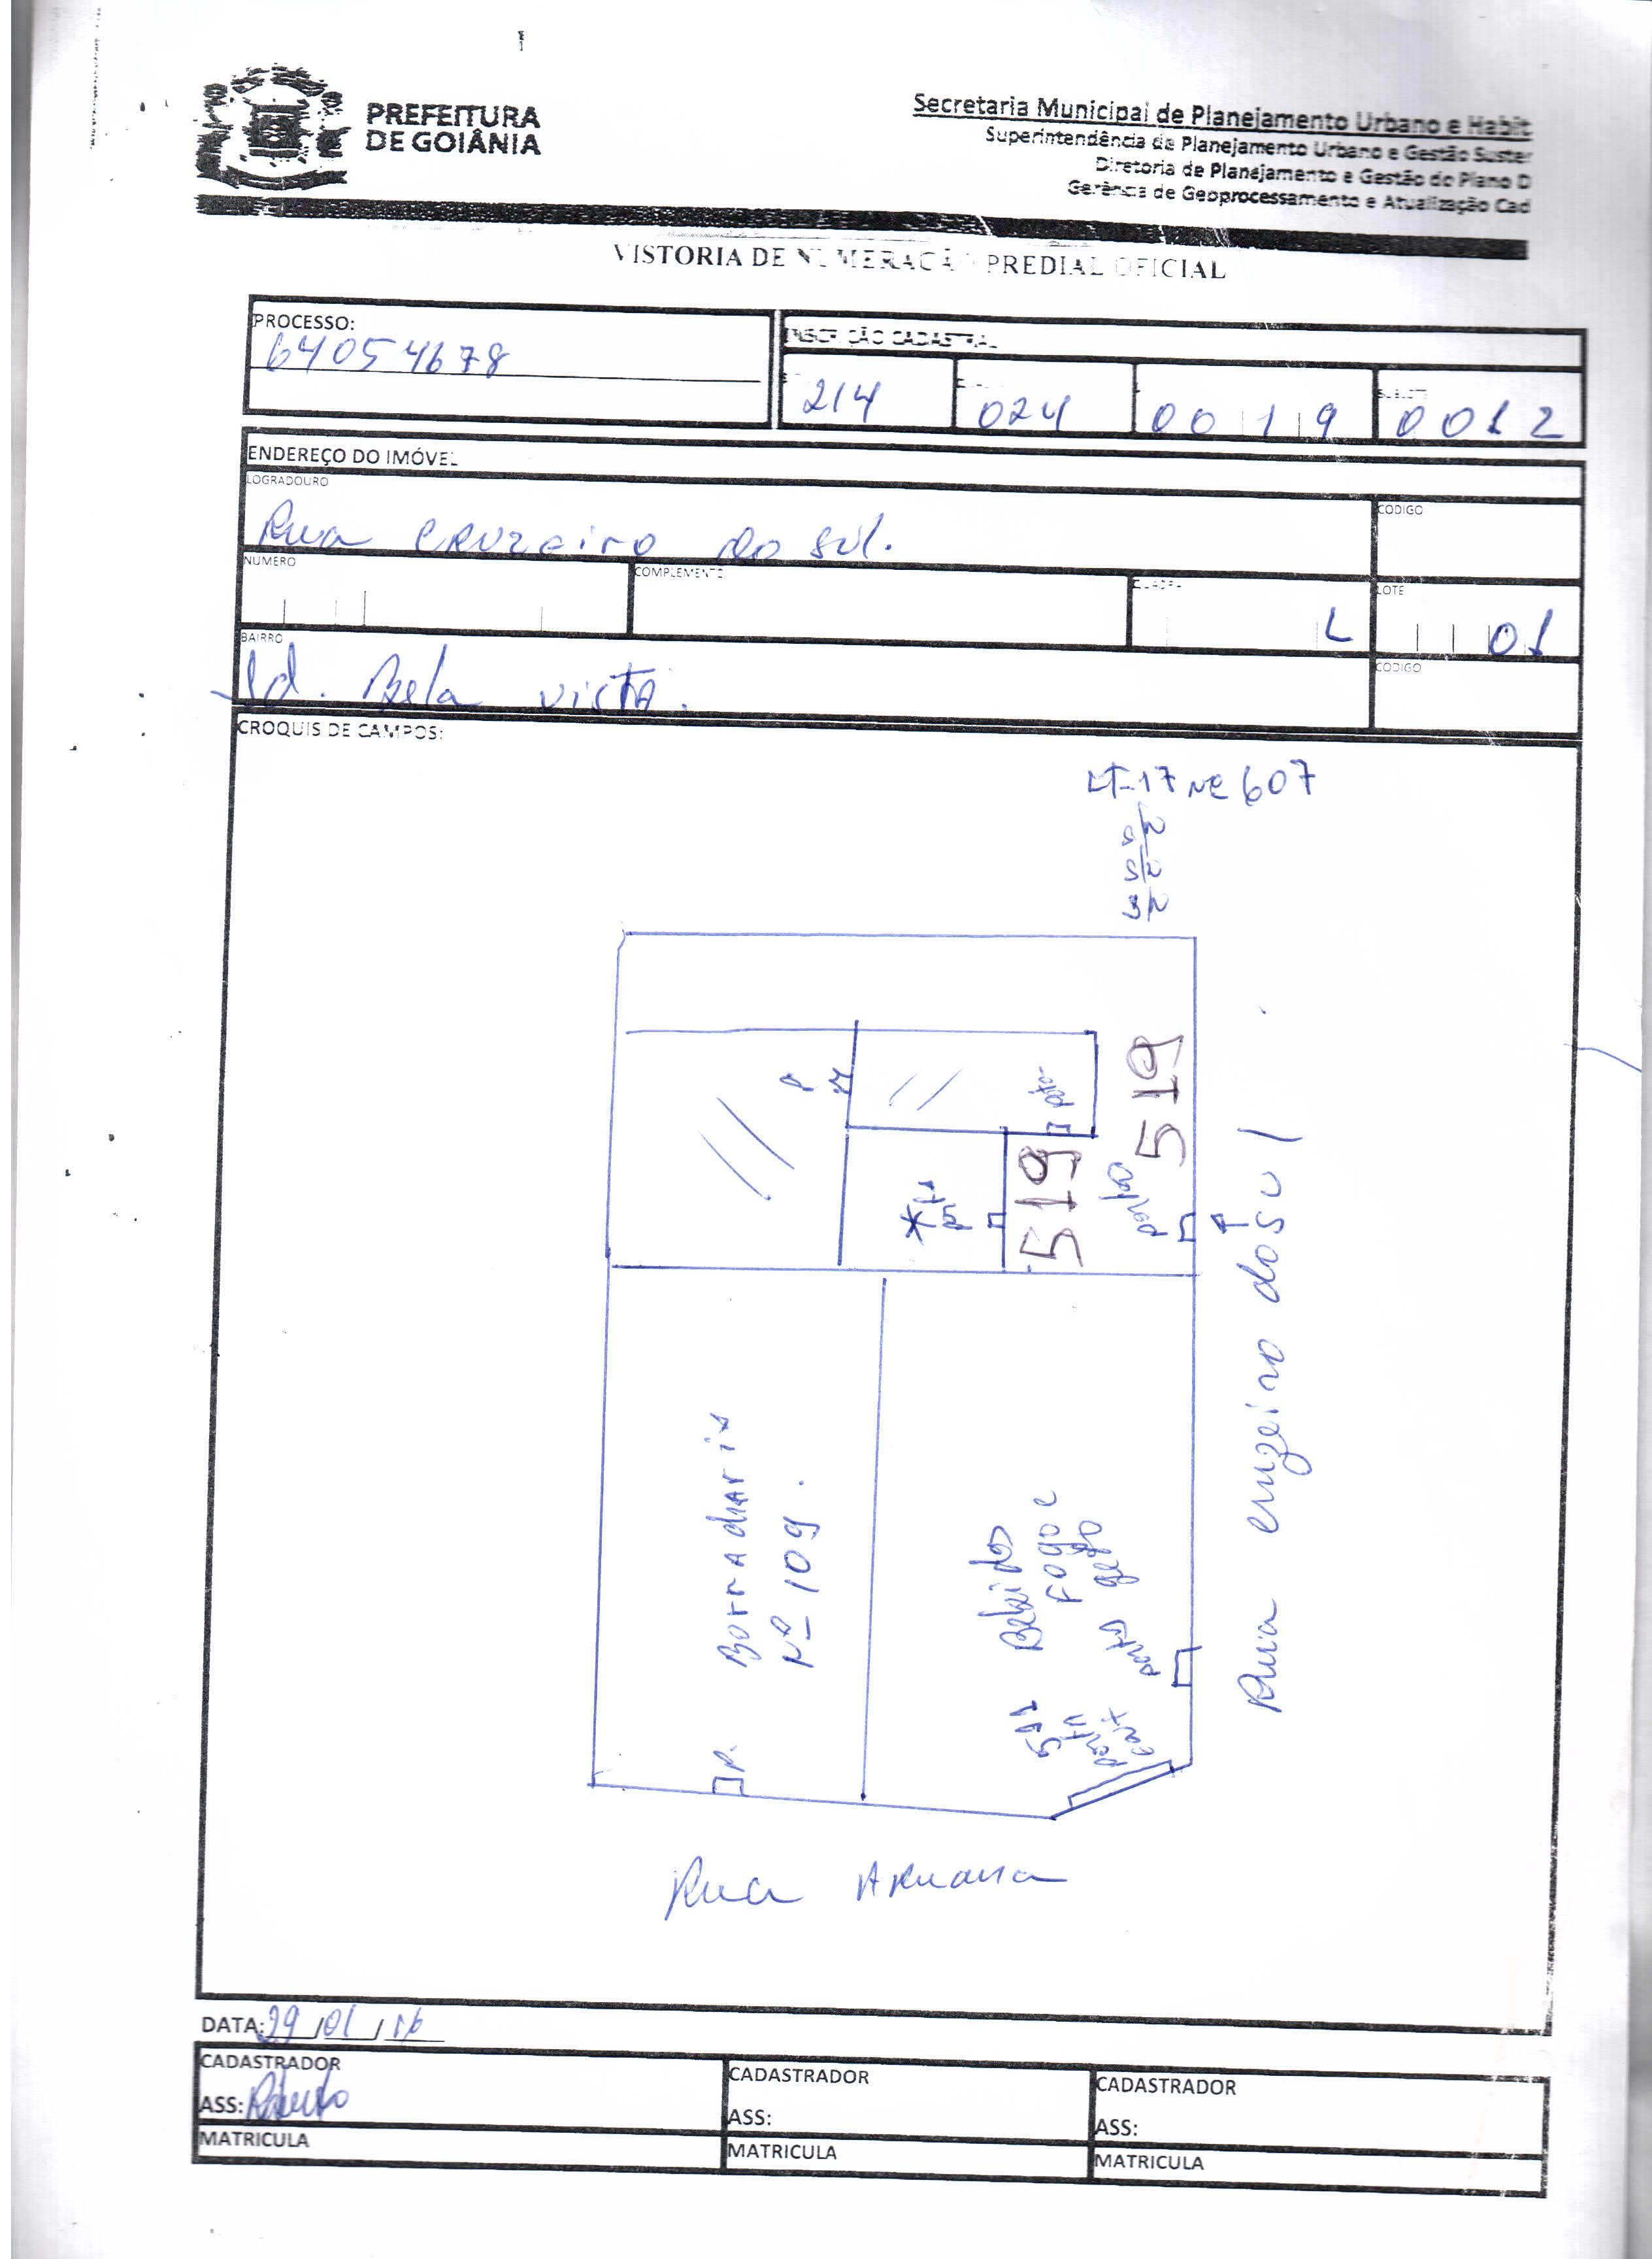 PREFEITURA
DE GOIÂNIA
Secretaria Municipal de Planejamento Urbano e Habit
Superintendência de Planejamento Urbano e Gestão Suster
Diretoria de Planejamento e Gestão do Plano D
Gerência de Geoprocessamento e Atualização Cad
VISTORIA DE NUMERAÇÃO PREDIAL OFICIAL
PROCESSO:
64054678
INSCRIÇÃO CADASTRAL
214 024 0019 0012
ENDEREÇO DO IMÓVEL
LOGRADOURO
CODIGO
Rua CRUZeiro do SUL.
NUMERO COMPLEMENTO QUADRA LOTE
L 01
BAIRRO
CODIGO
Jd. Bela VISTA.
CROQUIS DE CAMPOS:
LT-17 Nº 607
519
519
portão
Borracharia
Nº 109.
Bebidas
Fogo e
gelo
porta
511
porta
P.
Rua cruzeiro do sul
Rua Aruana
DATA: 29/01/16
CADASTRADOR CADASTRADOR CADASTRADOR
ASS: ASS: ASS:
MATRICULA MATRICULA MATRICULA